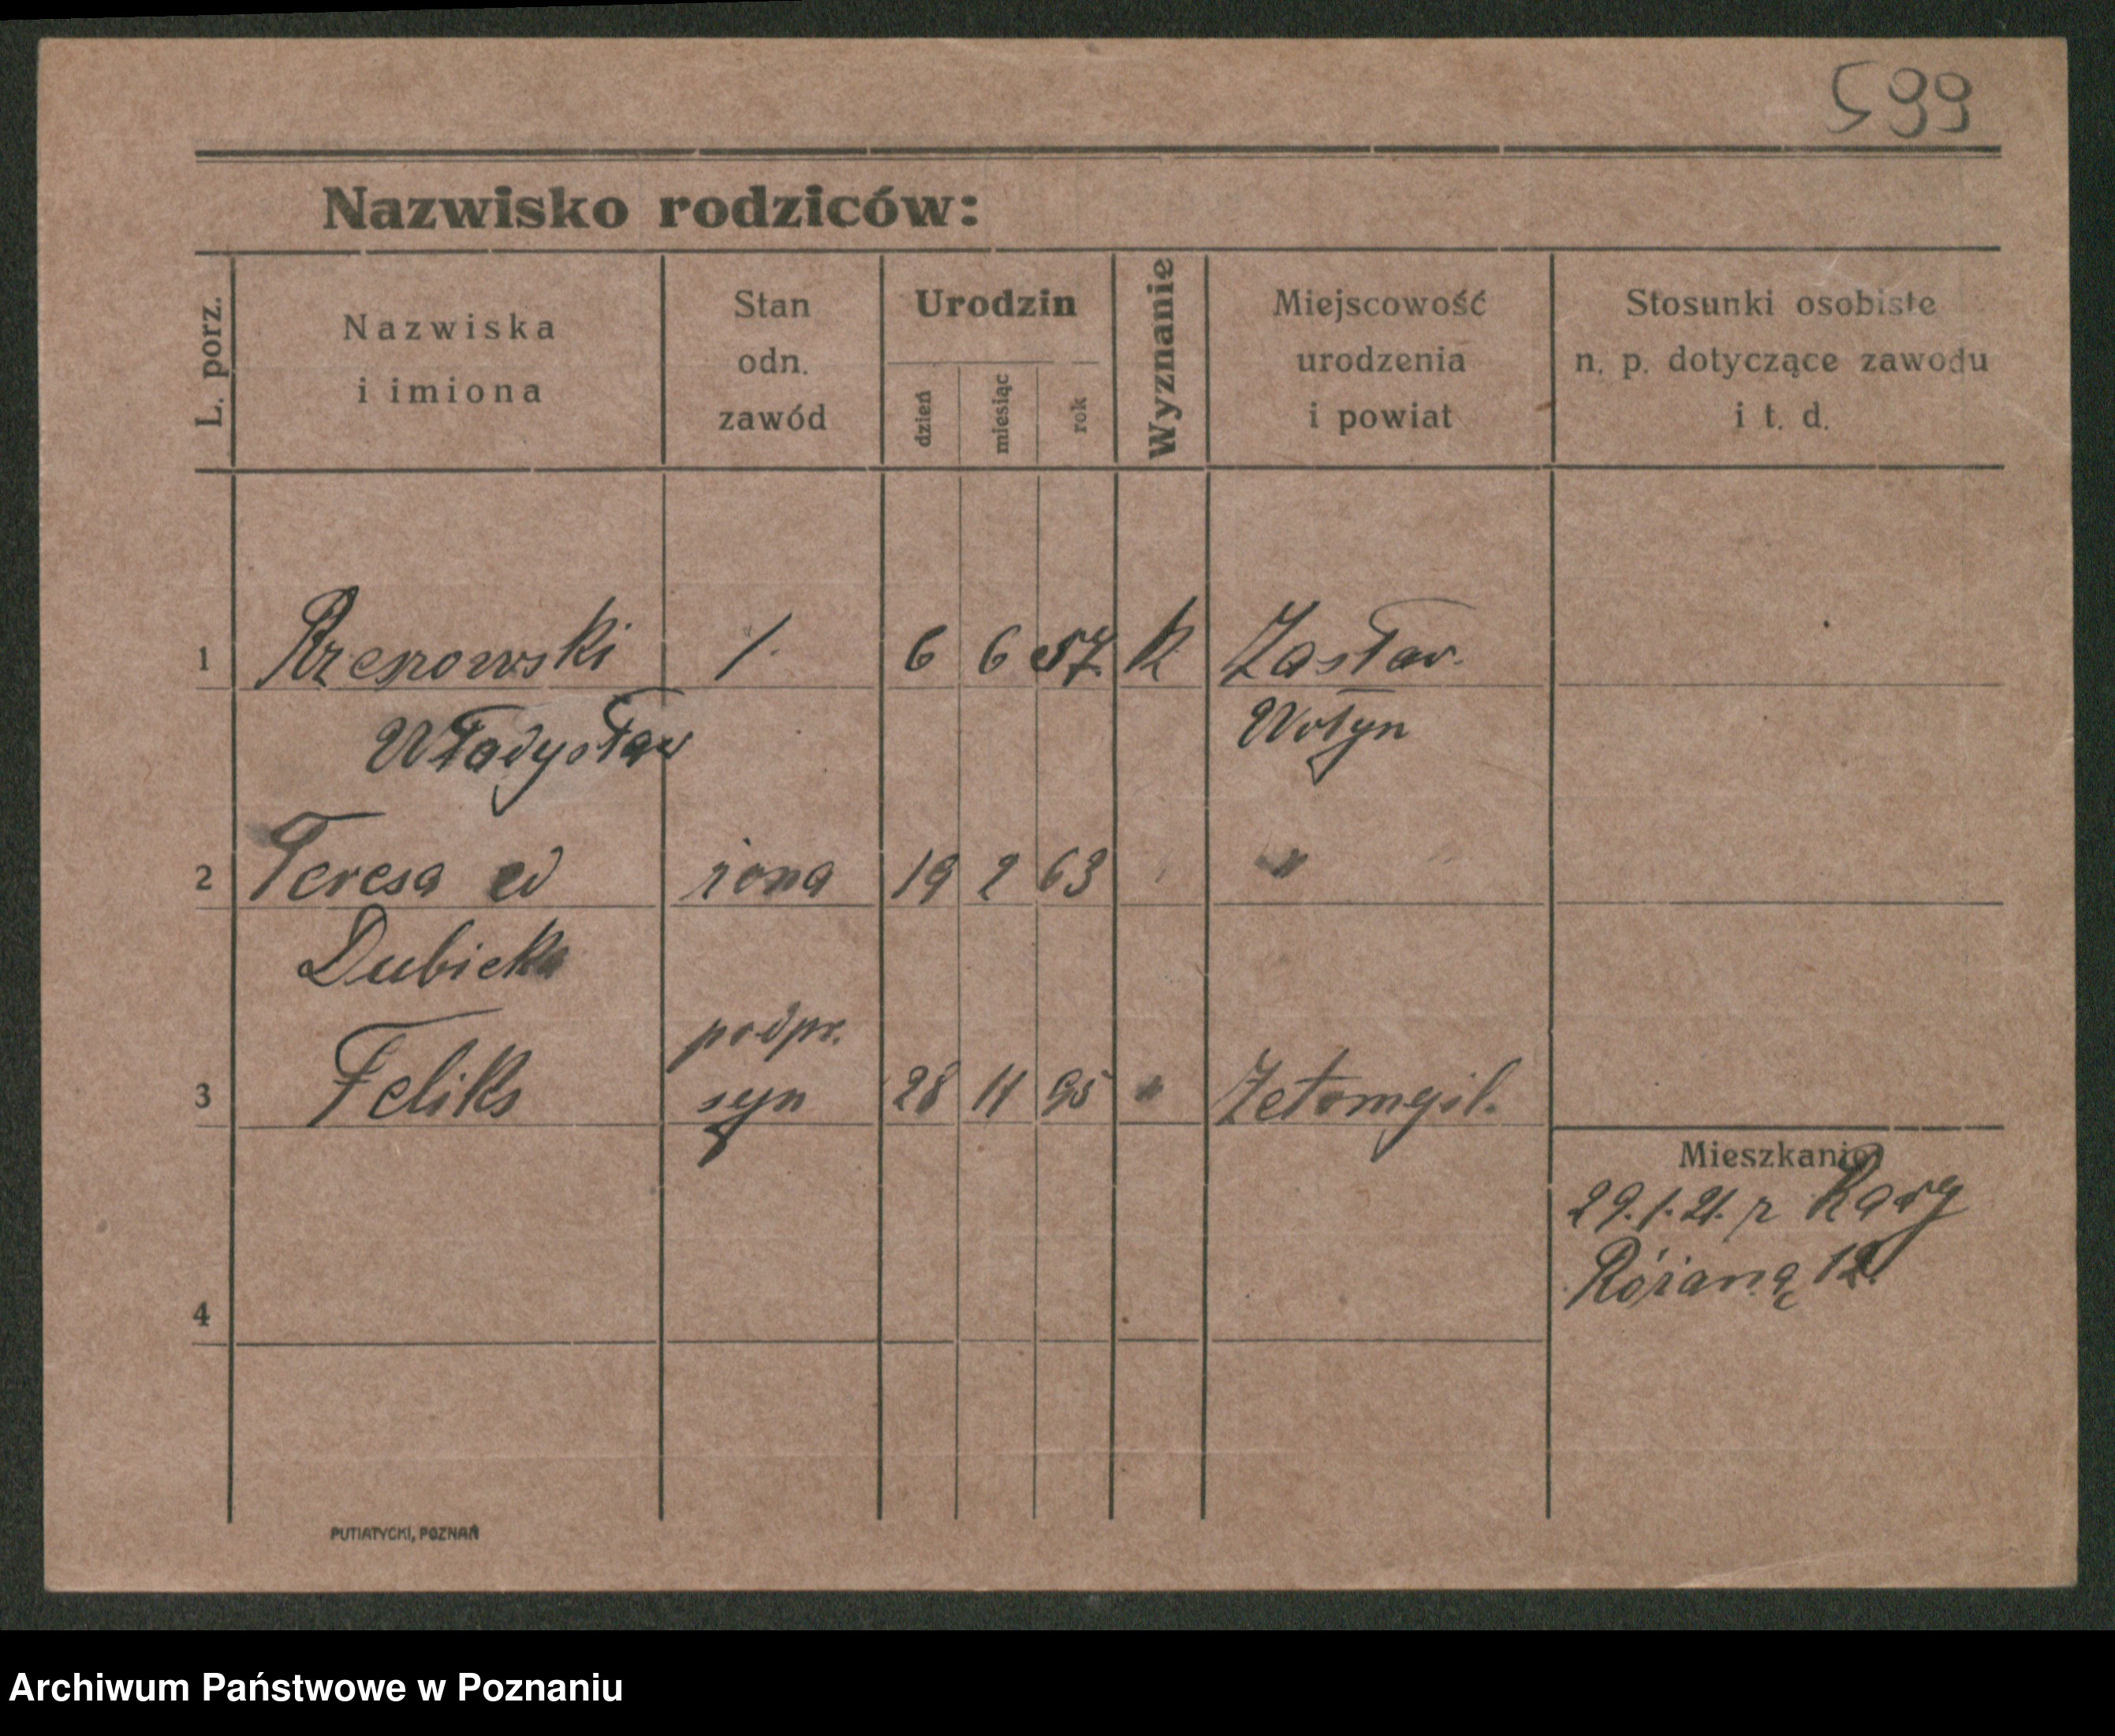 599
Nazwisko rodziców:
L. porz.
Nazwiska
i imiona
Stan
odn.
zawód
Urodzin
dzień
miesiąc
rok
Wyznanie
Miejscowość
urodzenia
i powiat
Stosunki osobiste
n. p. dotyczące zawodu
i t. d.
1 Rzepowski /. 6 6 57 K Zasław.
Władysław Wołyn
2 Teresa żona 19 2 63 "
Dubicka
podpr.
3 Feliks syn 28 11 95 "
Mieszkanie
29.1.21. z
Różaną 12
4
PUTIATYCKI, POZNAŃ
Archiwum Państwowe w Poznaniu